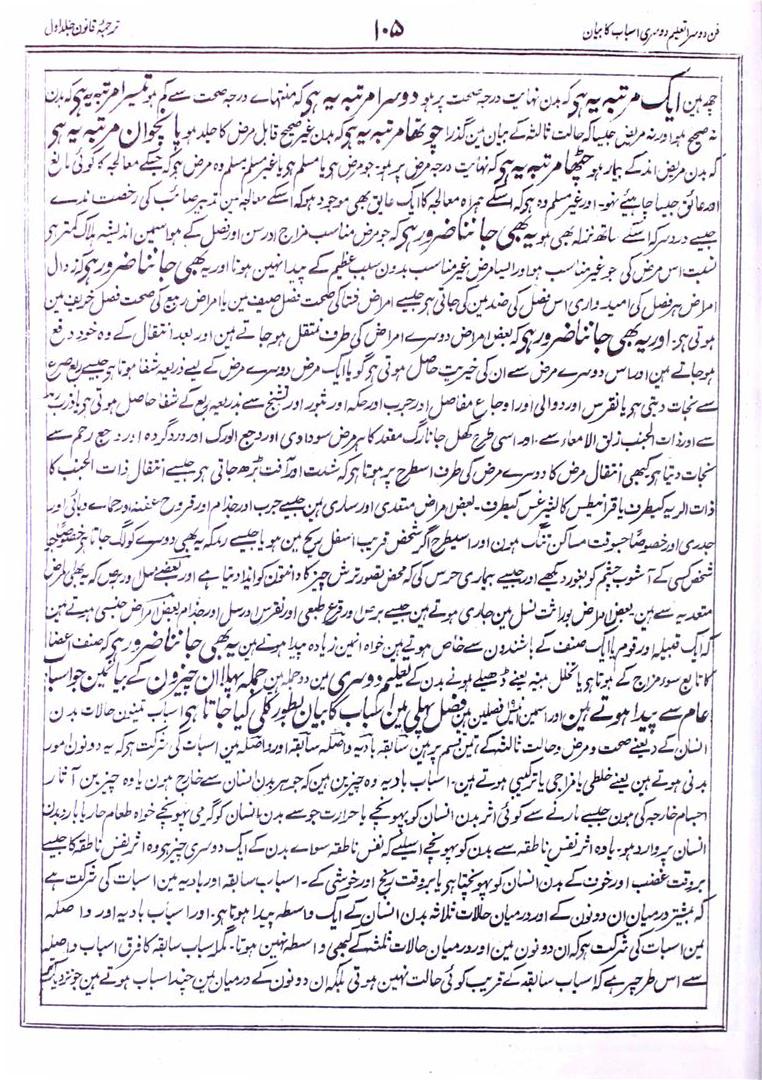 فن دوسرا تعلیم دوسری اسباب کا بیان ۱۰۵ ترجمۂ قانون جلد اول
چھ ہین ایک مرتبہ یہ ہی کہ بدن نہایت درجہ صحت پر ہو دوسرا مرتبہ یہ ہی کہ منتہاے درجہ صحت سے کم ہو تیسرا مرتبہ یہ ہی کہ بدن
نہ صحیح ہو اور نہ مریض جیسا کہ حالت ثالثہ کے بیان مین گذرا چوتھا مرتبہ یہ ہی کہ بدن غیر صحیح قابل مرض کا جلد ہو پانچوان مرتبہ یہ ہی
کہ بدن مریض اند کے بیمار ہو چھٹا مرتبہ یہ ہی کہ نہایت درجہ مرض پر ہو جو مرض ہو یا مسلم ہو یا غیر مسلم مسلم وہ مرض ہو کہ جسکے معالجہ کا کوئی مانع
اور عائق جیسا چاہیئے نہو۔ اور غیر مسلم وہ ہی کہ اسکے ہمراہ معالجہ کا ایک عایق بھی موجود ہو کہ اسکے معالجہ مین تدبیر صائب کی رخصت ندے
جیسے درد سر کہ اسکے ساتھ نزلہ بھی ہو یہ بھی جاننا ضرور ہی کہ جو مرض مناسب مزاج اور سن اور فصل کے ہو اسمین اندیشہ ہلاک کمتر ہی
نسبت اس مرض کی جو غیر مناسب ہو اور ایسا مرض غیر مناسب بدون سبب عظیم کے پیدا نہین ہوتا اور یہ بھی جاننا ضرور ہی کہ زوال
امراض ہر فصل کی امید واری اس فصل کی ضد مین کی جاتی ہی جیسے امراض شتا کی صحت فصل صیف مین یا امراض ربیع کی صحت فصل خریف مین
ہوتی ہی۔ اور یہ بھی جاننا ضرور ہی کہ بعض امراض دوسرے امراض کی طرف منتقل ہو جاتے ہین اور بعد انتقال کے وہ خود دفع
ہو جاتے ہین اور اس دوسرے مرض سے ان کی خیریت حاصل ہوتی ہی گویا ایک مرض دوسرے مرض کے لیے ذریعہ شفا ہوتا ہی جیسے ربع صرع
سے نجات دیتی ہی یا نقرس اور دوالی اور اوجاع مفاصل اور جرب اور حکہ اور بثور اور تشنج سے بذریعہ ربع کے شفا حاصل ہوتی ہی یا ذرب رمد
سے اور ذات الجنب زلق الامعاء سے۔ اور اسی طرح کھل جانا رگ مقعد کا ہر مرض سوداوی اور وجع الورک اور درد گردہ اور وجع رحم سے
نجات دیتا ہی کبھی انتقال مرض کا دوسرے مرض کی طرف اسطرح پر ہوتا ہی کہ شدت اور آفت بڑھ جاتی ہی جیسے انتقال ذات الجنب کا
ذات الریہ کیطرف یا قرانیطس کا لیثرغس کیطرف۔ بعض امراض متعدی اور ساری ہین جیسے جرب اور جذام اور قروح عفنہ اور حماے وبائی اور
جدری اور خصوصاً جسوقت مساکن تنگ ہون اور اسیطرح اگر شخص قریب اسفل ریح مین ہو یا جیسے رمد کہ یہ بھی دوسرے کو لگ جاتا ہی خصوصاً جو
شخص کسی کے آشوب چشم کو بغور دیکھے اور جیسے بیماری ضرس کی کہ محض تصور ترش چیز کا دانتون کو ایذا دیتا ہے اور جیسے سل و برص کہ یہ بھی امراض
متعدیہ سے ہین۔ بعض امراض بوراثت نسل مین جاری ہوتے ہین جیسے برص اور قرع طبعی اور نقرس اور سل اور جذام بعض امراض جنسی ہوتے ہین
کہ ایک قبیلہ اور قوم یا ایک صنف کے باشندون سے خاص ہوتے ہین خواہ انمین زیادہ پیدا ہوتے ہین یہ بھی جاننا ضرور ہی کہ ضعف اعضا
کا تابع سوء مزاج کے ہوتا ہی یا تخلخل بنیہ یعنے ڈھیلے ہونے بدن کے تعلیم دوسری مین دو جملہ ہین جملہ پہلا ان چیزون کے بیان مین جو اسباب
عام سے پیدا ہوتے ہین اور اسمین فصلین ہین فصل پہلی مین اسباب کا بیان بطور کلی کیا جاتا ہی اسباب تینون حالات بدن
انسان کے یعنے صحت و مرض و حالت ثالثہ کے تین قسم پر ہین سابقہ بادیہ واصلہ سابقہ اور واصلہ مین اس بات کی شرکت ہی کہ یہ دونون امور
بدنی ہوتے ہین یعنے خلطی یا مزاجی یا ترکیبی ہوتے ہین۔ اسباب بادیہ وہ چیزین ہین کہ جو ہر بدن انسان سے خارج ہون یا وہ چیزین آثار
اجسام خارجہ کی ہون جیسے مارنے سے کوئی اثر بدن انسان کو پہونچے یا حرارت جو سے بدن انسان کو گرمی پہونچے خواہ طعام حار یا بارد بدن
انسان پر وارد ہو۔ یا وہ اثر نفس ناطقہ سے بدن کو پہونچے اسلیئے کہ نفس ناطقہ سواے بدن کے ایک دوسری چیز ہی وہ اثر نفس ناطقہ کا جیسے
بر وقت غضب اور خوف کے بدن انسان کو پہونچتا ہی یا بر وقت رنج اور خوشی کے۔ اسباب سابقہ اور بادیہ مین اس بات کی شرکت ہے
کہ بیشتر درمیان ان دونون کے اور درمیان حالات ثلاثہ بدن انسان کے ایک واسطہ پیدا ہوتا ہی۔ اور اسباب بادیہ اور واصلہ
مین اس بات کی شرکت ہی کہ ان دونون مین اور درمیان حالات ثلثہ کے کبھی واسطہ نہین ہوتا۔ مگر اسباب سابقہ کا فرق اسباب واصلہ
سے اس طرح پر ہے کہ اسباب سابقہ کے قریب کوئی حالت نہین ہوتی بلکہ ان دونون کے درمیان مین چند اسباب ہوتے ہین جو نزدیک